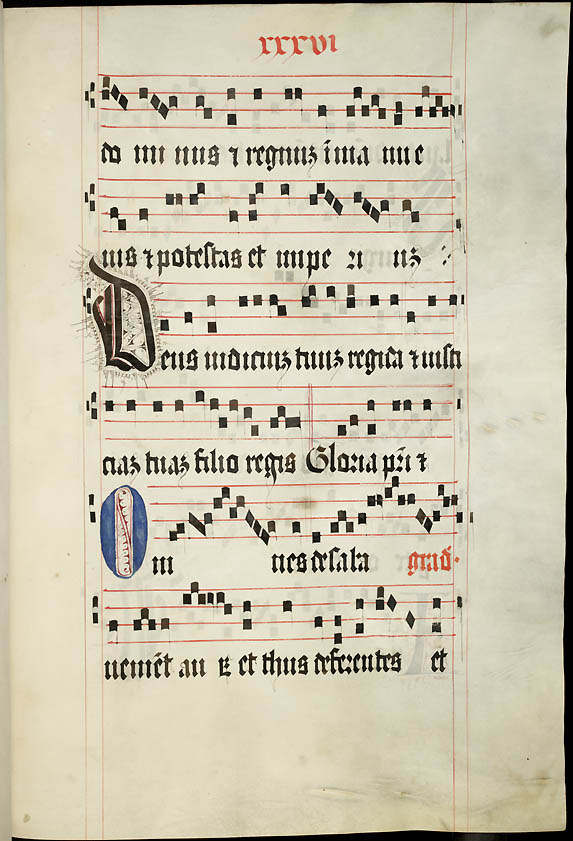 xxxvi
do mi nus ⁊ regnuȝ ī ma nu e
ius ⁊ potestas et impe ri uȝ :
Deus iudiciuȝ tuuȝ regi da ⁊ iusti
ciaȝ tuaȝ filio regis Gloria pr̄i ⁊
Om nes de saba grad̄.
venient̄ au ꝝ et thus deferentes et